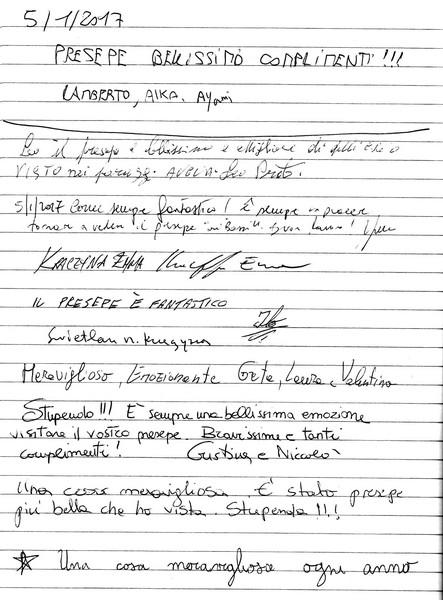 5/1/2017
PRESEPE BELLISSIMO COMPLIMENTI!!!
LAMBERTO, AIKA. Ayami
il presepe è bellissimo e migliore di
VISTO nei
5/1/2017 Come sempre fantastico! È sempre un piacere
tornare a vedere il presepe
IL PRESEPE È FANTASTICO
Svietlan n.
Meraviglioso, Emozionante Greta, Laura e Valentina
Stupendo!!! È sempre una bellissima emozione
visitare il vostro presepe. Bravissime e tanti
complimenti! Giustina e Niccolò
Una cosa meravigliosa. È stato presepe
più bella che ho vista. Stupenda!!!!
Una cosa meravigliosa ogni anno